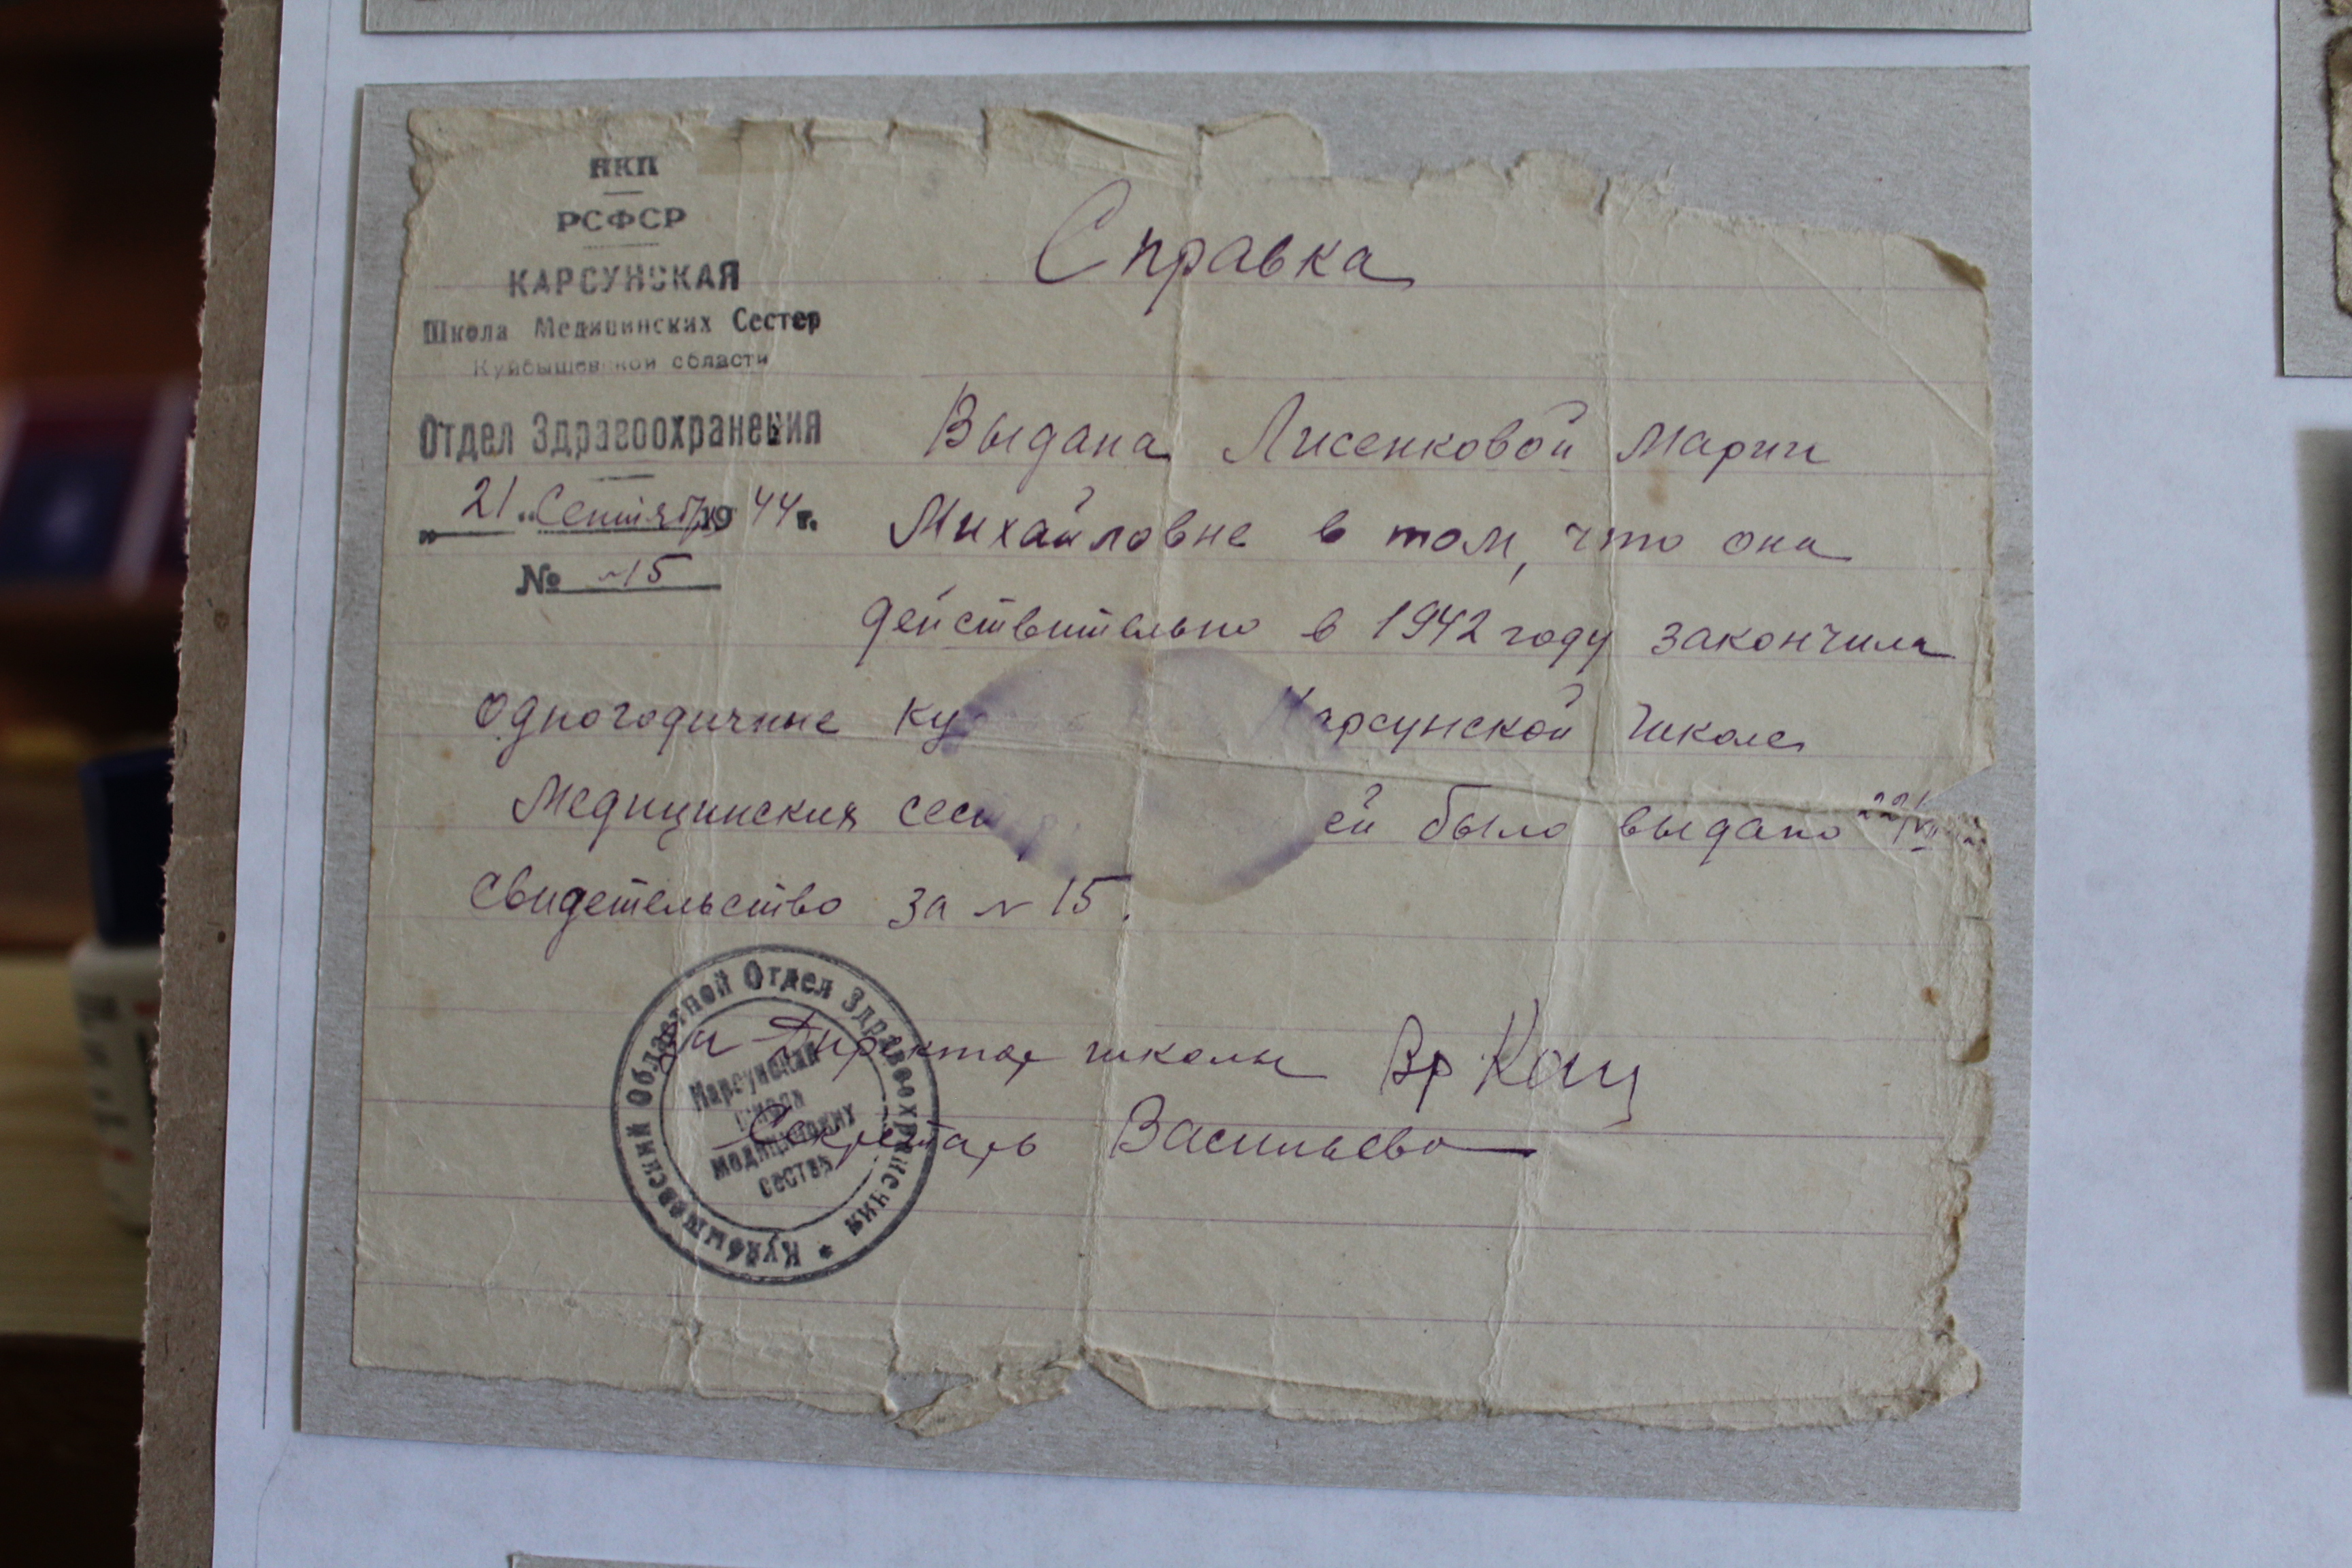 НКП
РСФСР
КАРСУНСКАЯ
Школа Медицинских Сестер
Куйбышевской области
Отдел Здравоохранения
„21" Сентября 1944 г.
№ 15
Справка
Выдана Лисенковой Марии
Михайловне в том, что она
действительно в 1942 году закончила
Одногодичные ку Карсунской школе
Медицинских сест ей было выдано 22/VII
свидетельство за № 15.
Директор школы Вр Кац
Секретарь Васильева
Куйбышевский Областной Отдел Здравоохранения *
Карсунская
школа
медицинских
сестер